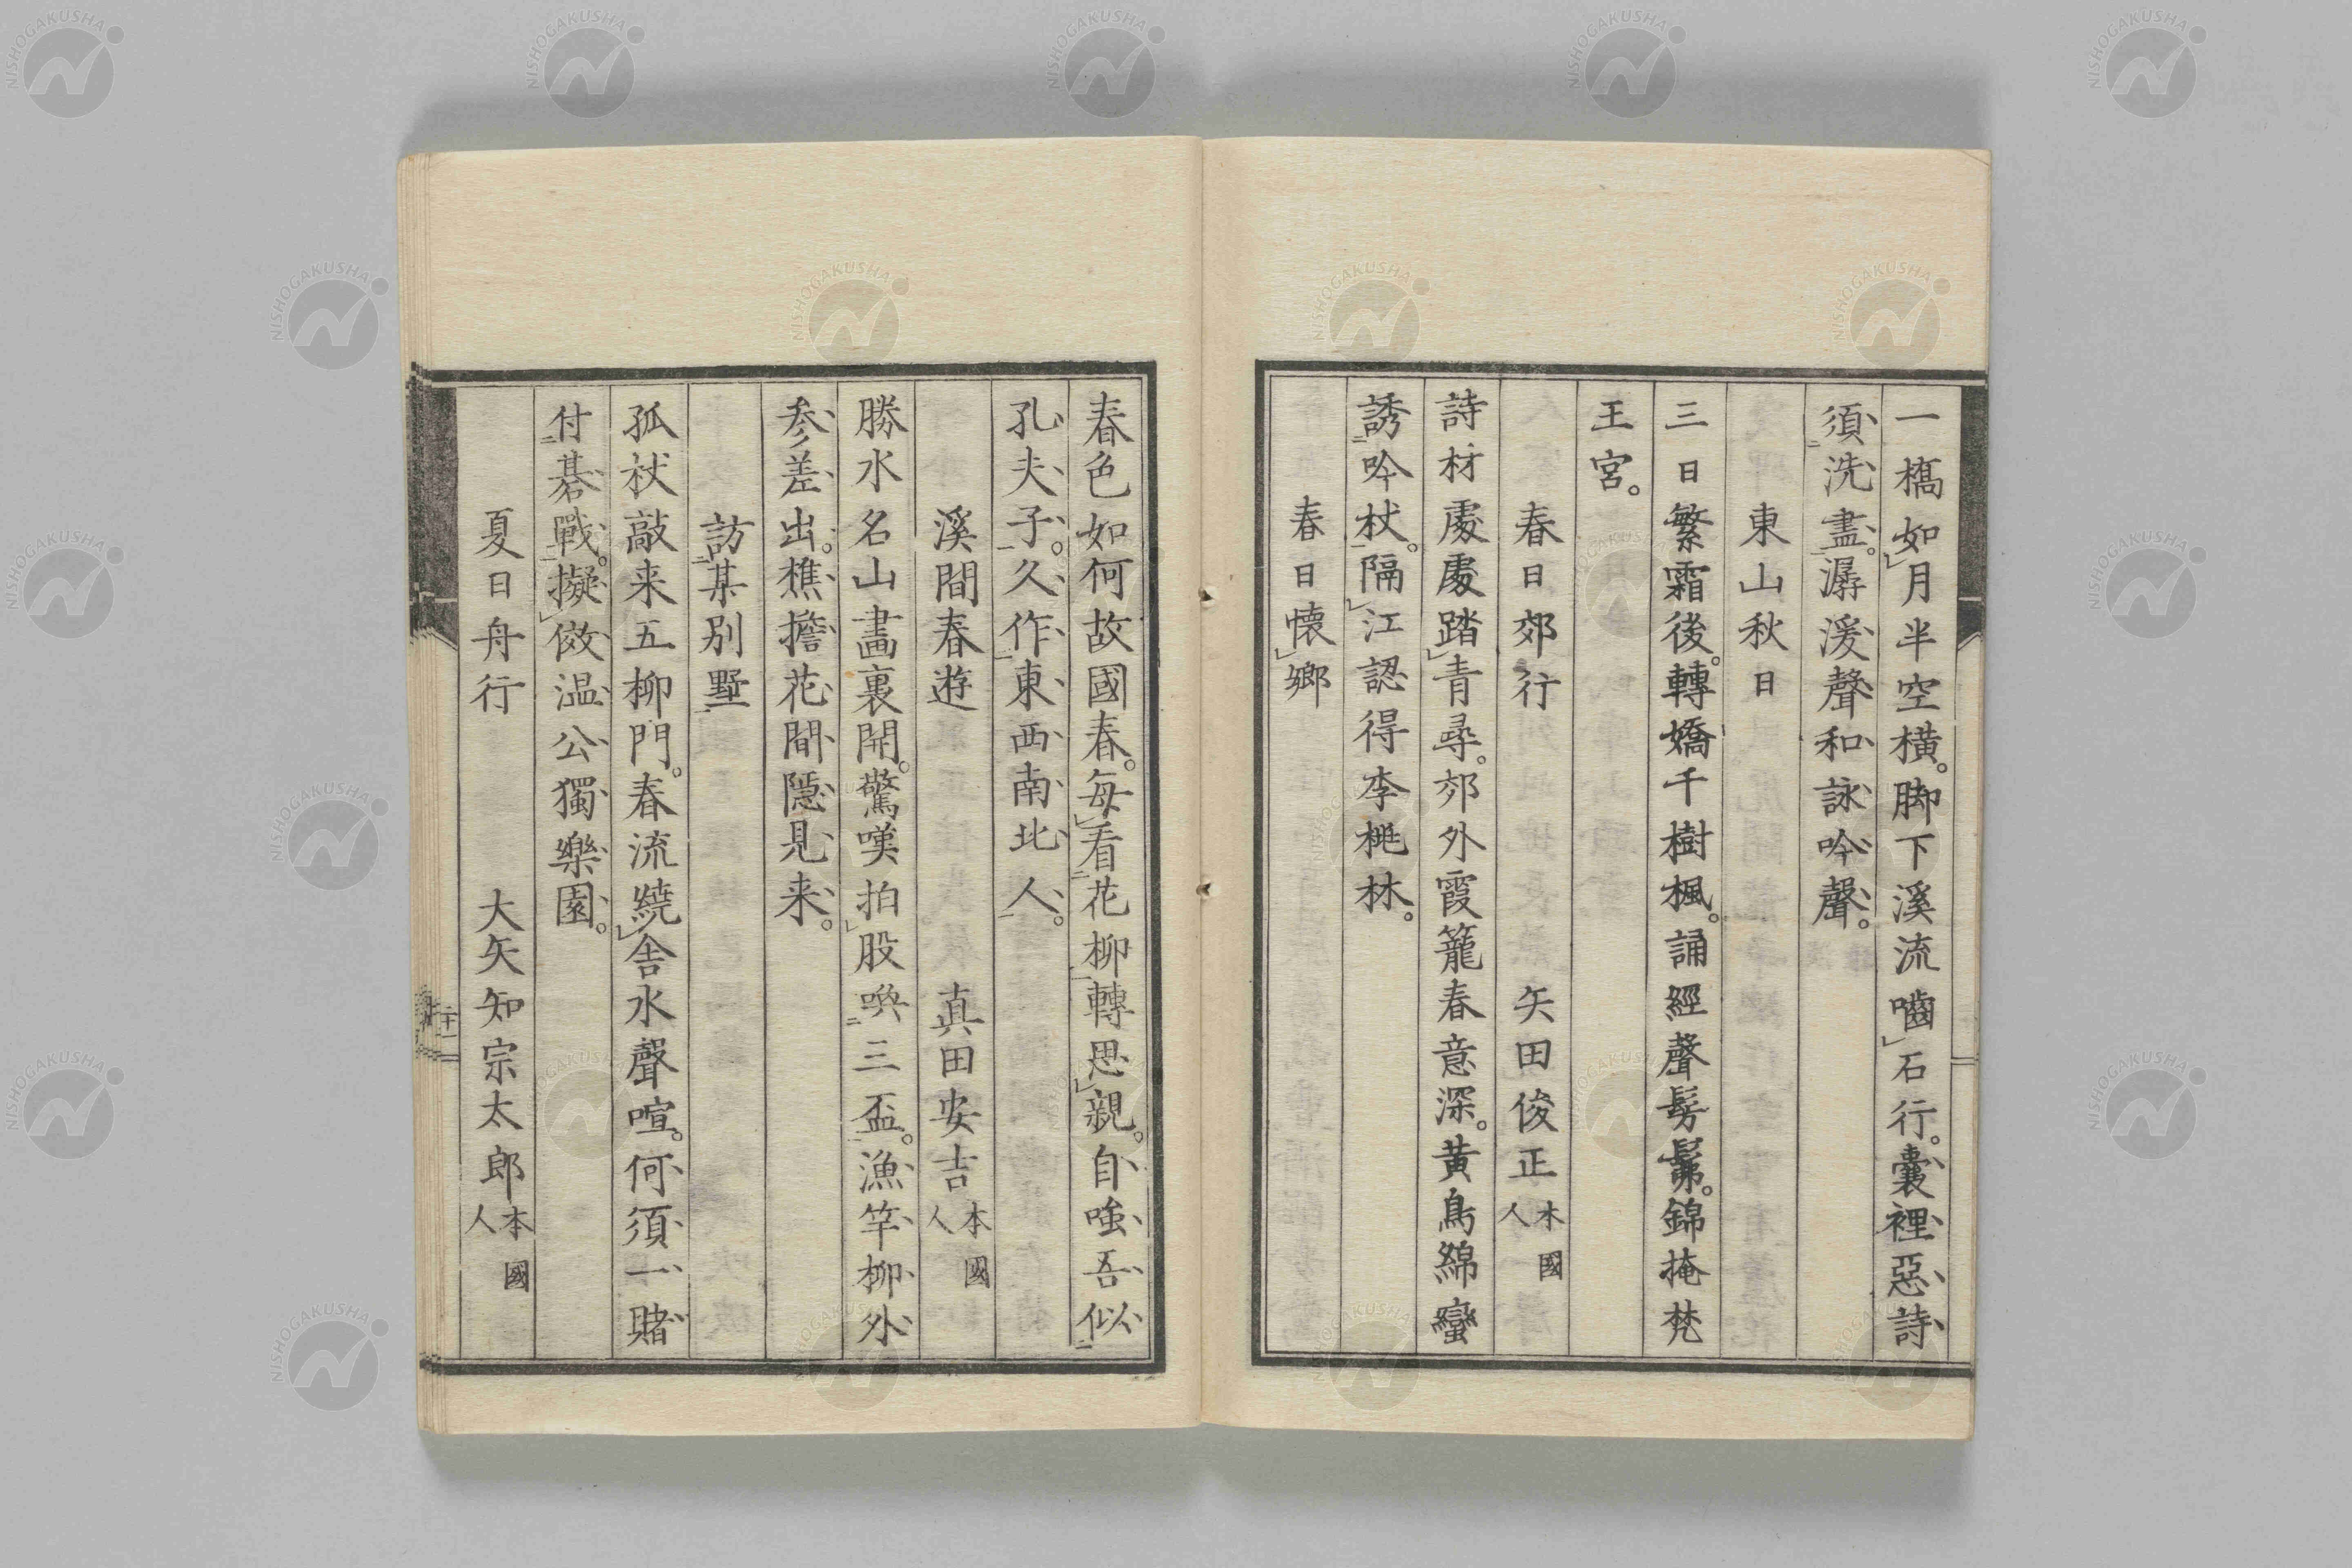 一橋如月半空橫。脚下溪流嚙石行。囊裡惡詩
須洗盡。潺湲聲和詠吟聲。
東山秋日
三日繁霜後。轉嬌千樹楓。誦經聲髣髴。錦掩梵
王宮。
春日郊行　矢田俊正 本國人
詩材處處踏青尋。郊外霞籠春意深。黃鳥綿蠻
誘吟杖。隔江認得李桃林。
春日懷鄉
春色如何故國春。每看花柳轉思親。自嗤吾似
孔夫子。久作東西南北人。
溪間春遊　真田安吉 本國人
勝水名山畫裏開。驚嘆拍股喚三盃。漁竿柳外
参差出。樵擔花間隱見来。
訪某別墅
孤杖敲来五柳門。春流繞舍水聲喧。何須一賭
付碁戰。擬倣温公獨樂園。
夏日舟行　大矢知宗太郎 本國人
NISHOGAKUSHA